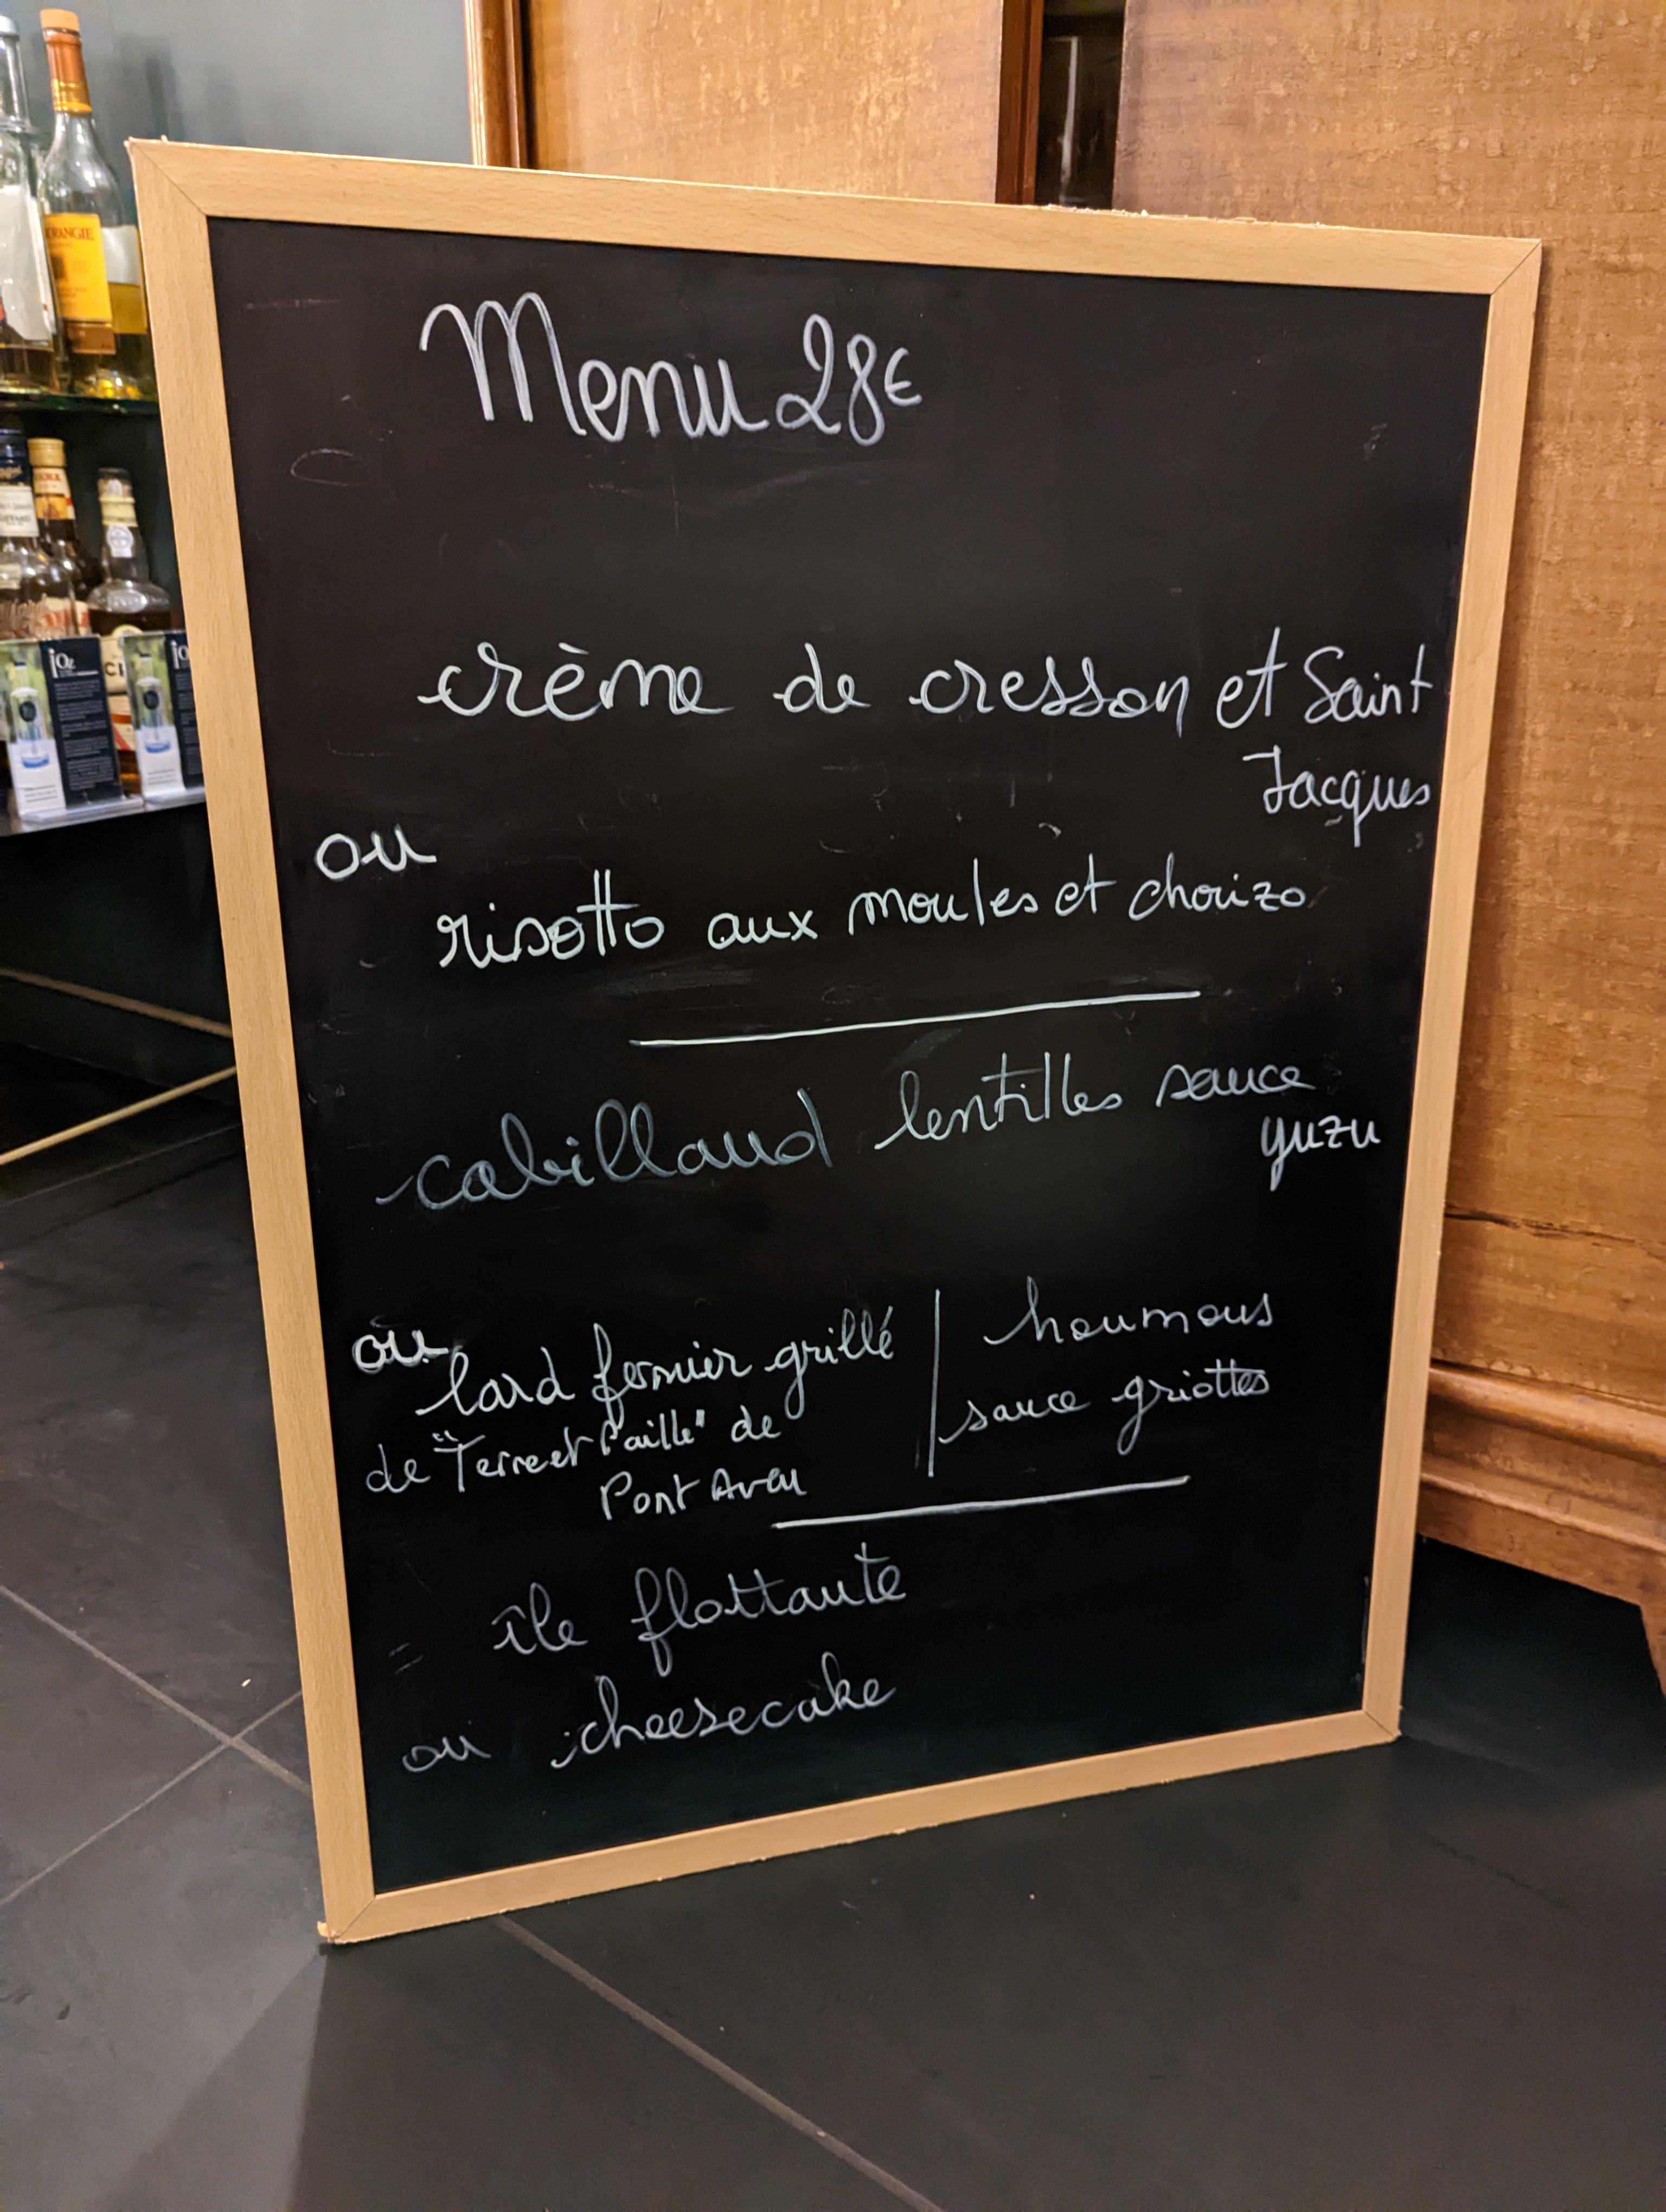 Menu 28€
crème de cresson et Saint
Jacques
ou
risotto aux moules et chorizo
cabillaud lentilles sauce
yuzu
ou
lard fermier grillé
de "Terre et Paille" de
Pont Aven
houmous
sauce griottes
île flottante
ou cheesecake
ORANGIE
jOz
jO